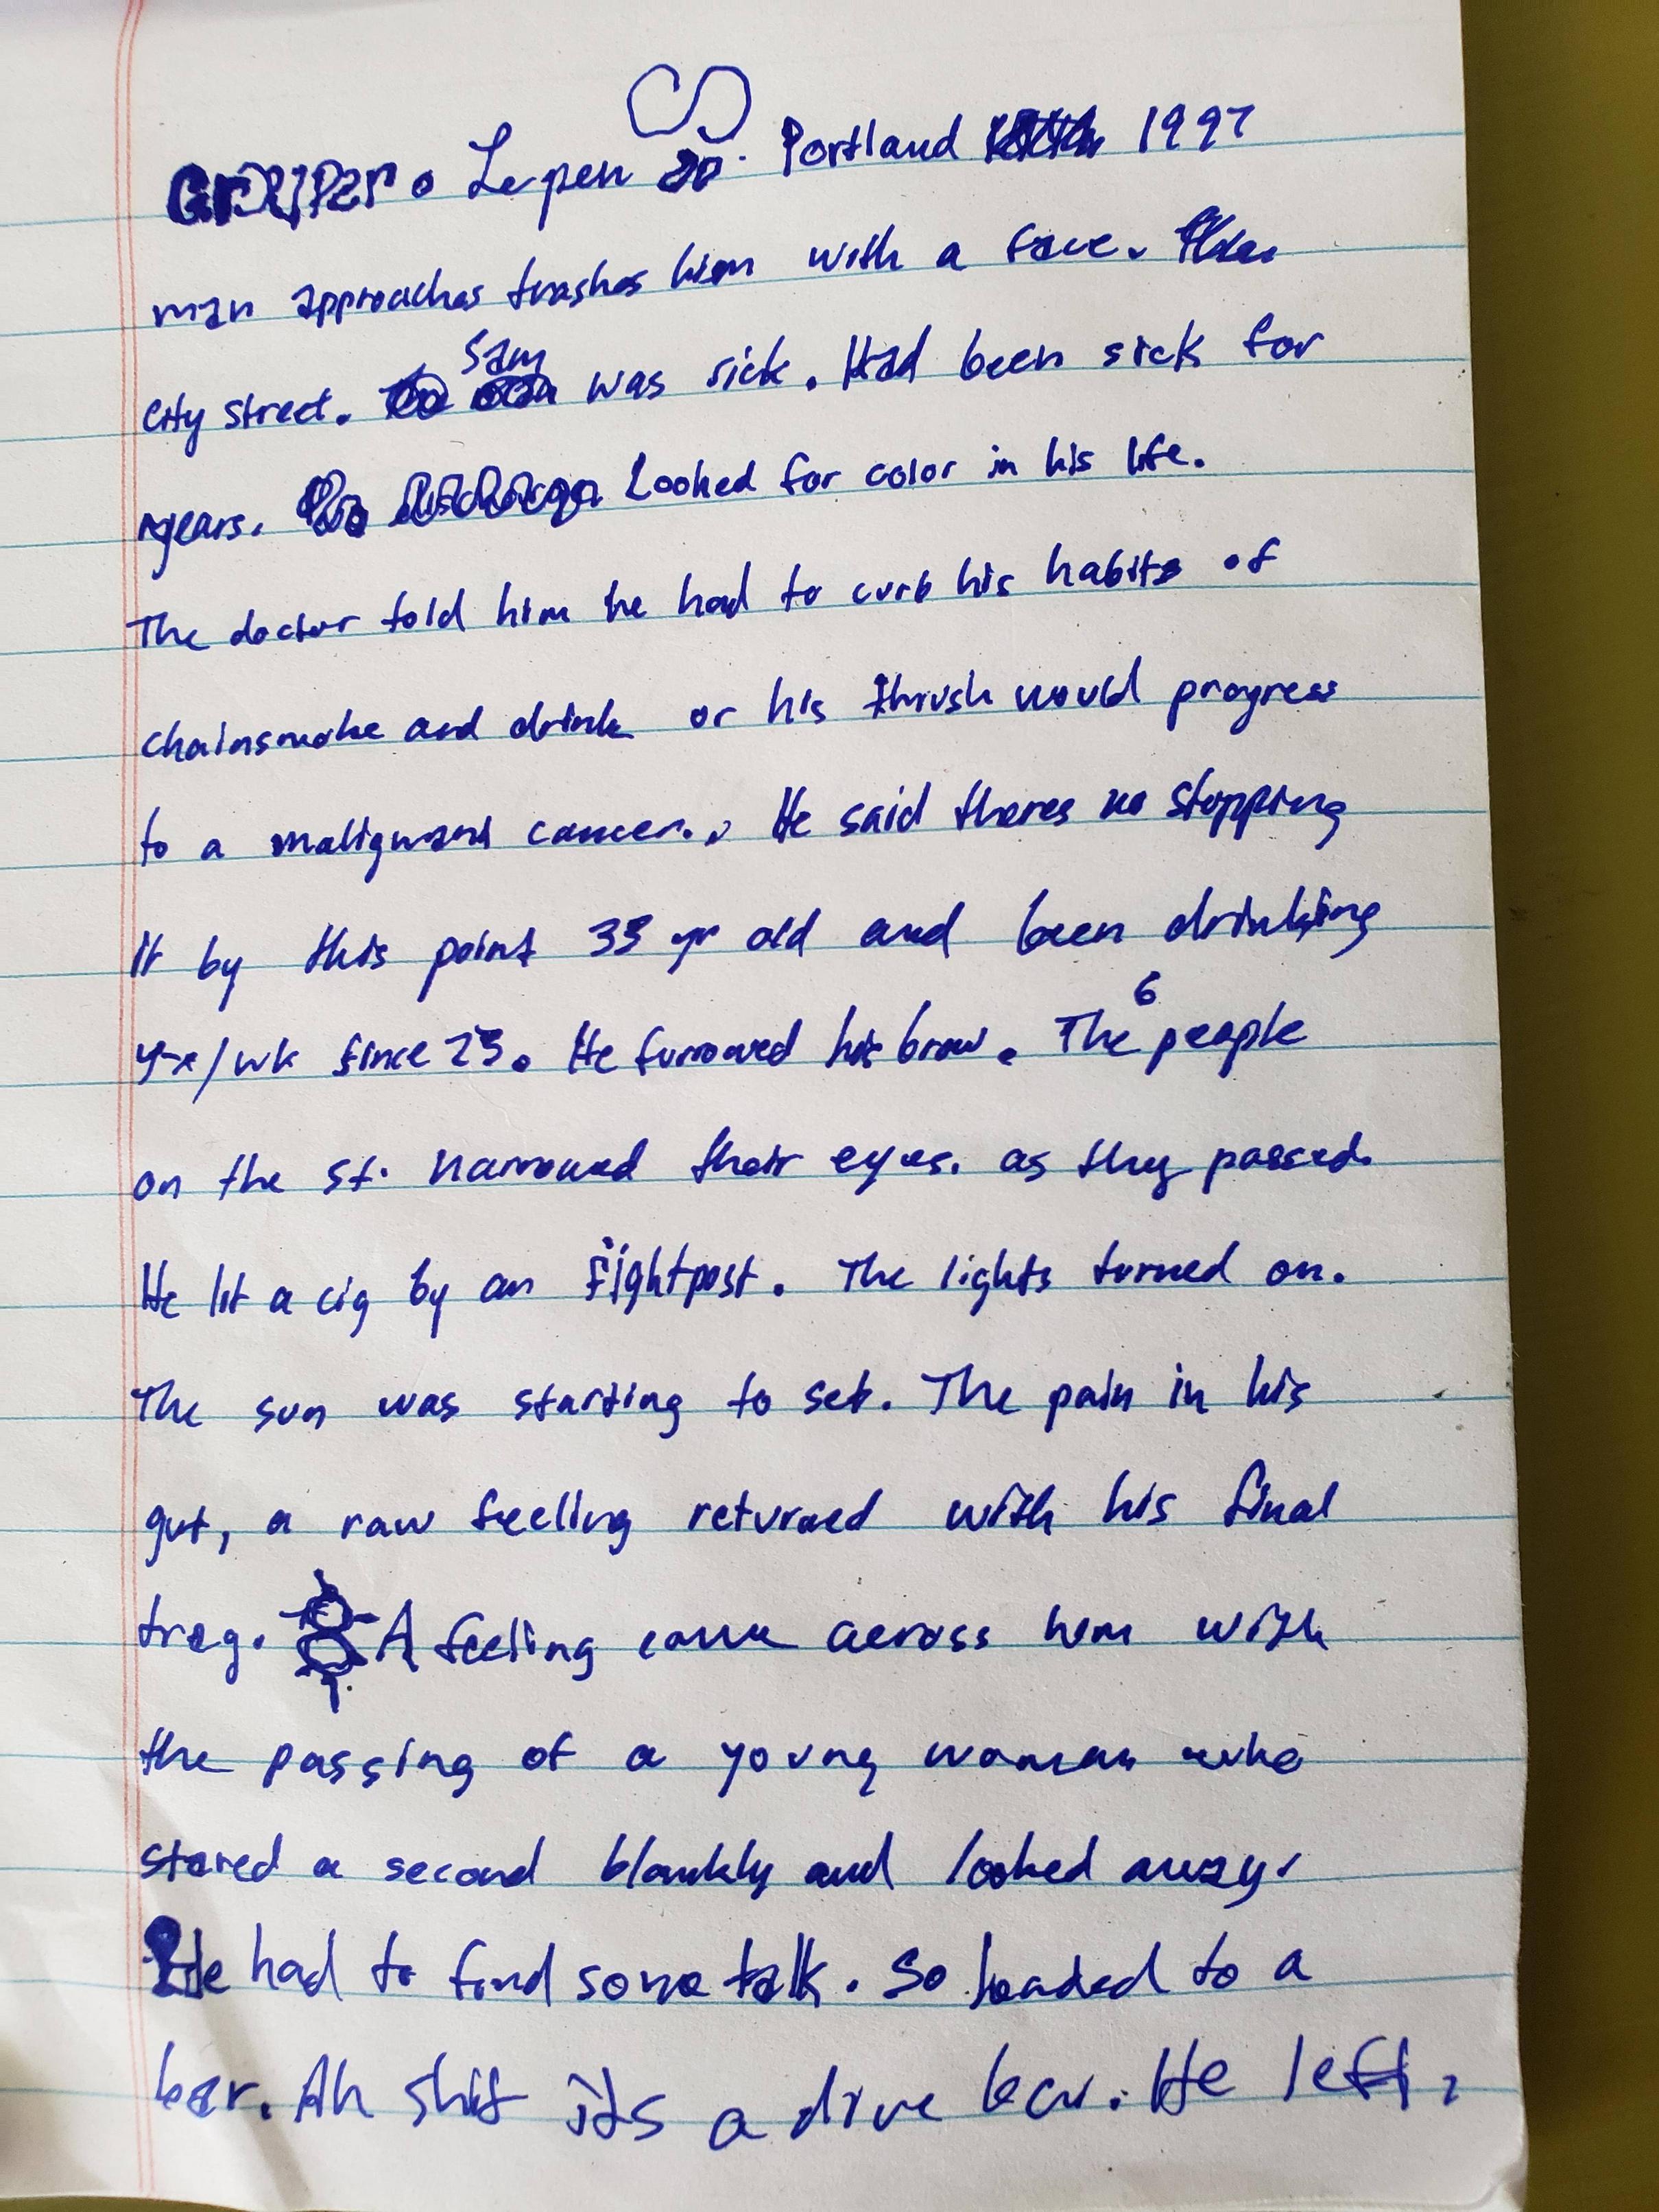 Portland 1997
man approaches trashes him with a face.
city street. Sam was sick. Had been sick for
years. Looked for color in his life.
The doctor told him he had to curb his habits of
chainsmoke and drink or his thrush would progress
to a malignant cancer.. He said theres no stopping
it by this point 33 yr old and been drinking
4x/wk since 23. He furrowed his brow. The 6 people
on the st. narrowed their eyes. as they passed.
He lit a cig by an lightpost. The lights turned on.
The sun was starting to set. The pain in his
gut, a raw feeling returned with his final
drag. A feeling came across him with
the passing of a young woman who
stared a second blankly and looked away.
He had to find some talk. So headed to a
bar. Ah shit its a dive bar. He left.